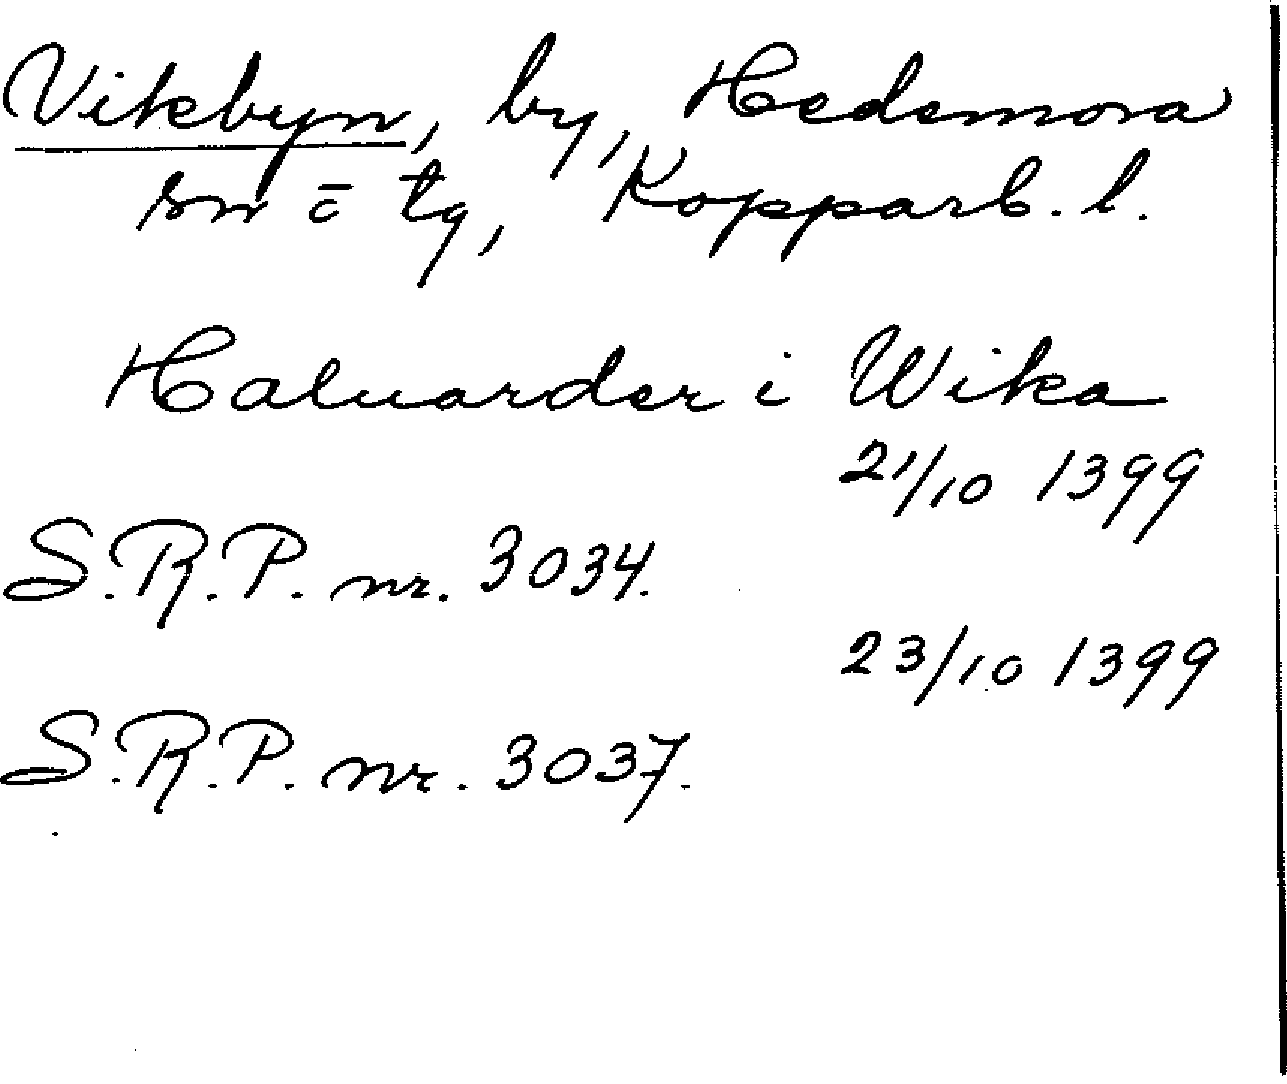 Vikbyn, by, Hedemora
sn c̄ tg, Kopparb. l.
Haluarder i Wika
21/10 1399
S.R.P. nr. 3034.
23/10 1399
S.R.P. nr. 3037.